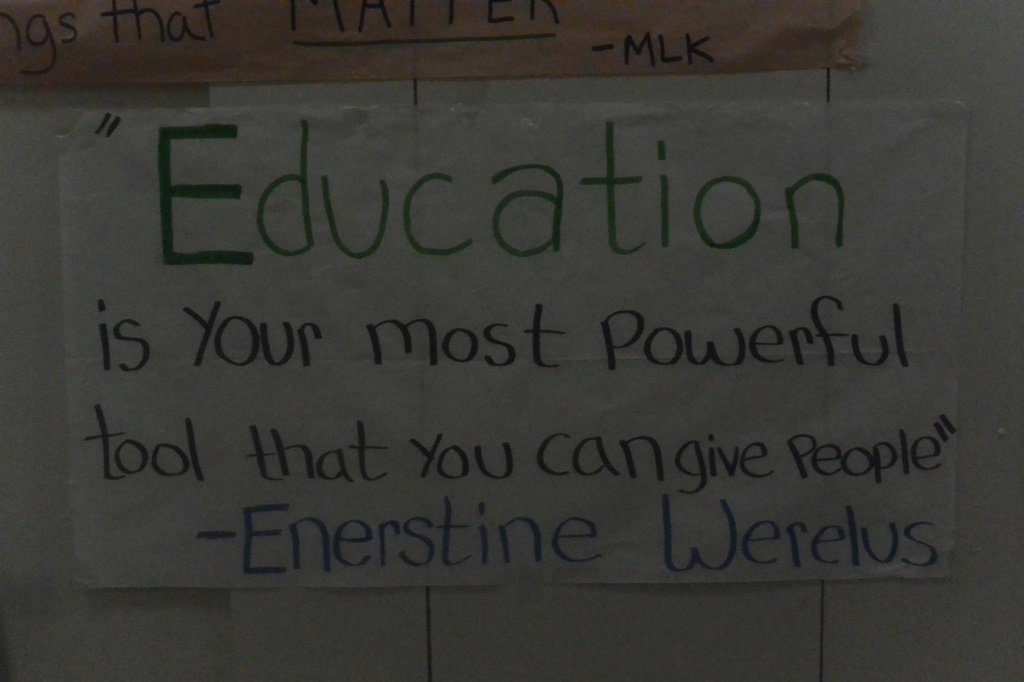 ngs that MATTER
-MLK
"Education
is Your most Powerful
tool that You can give People"
-Enerstine Werelus